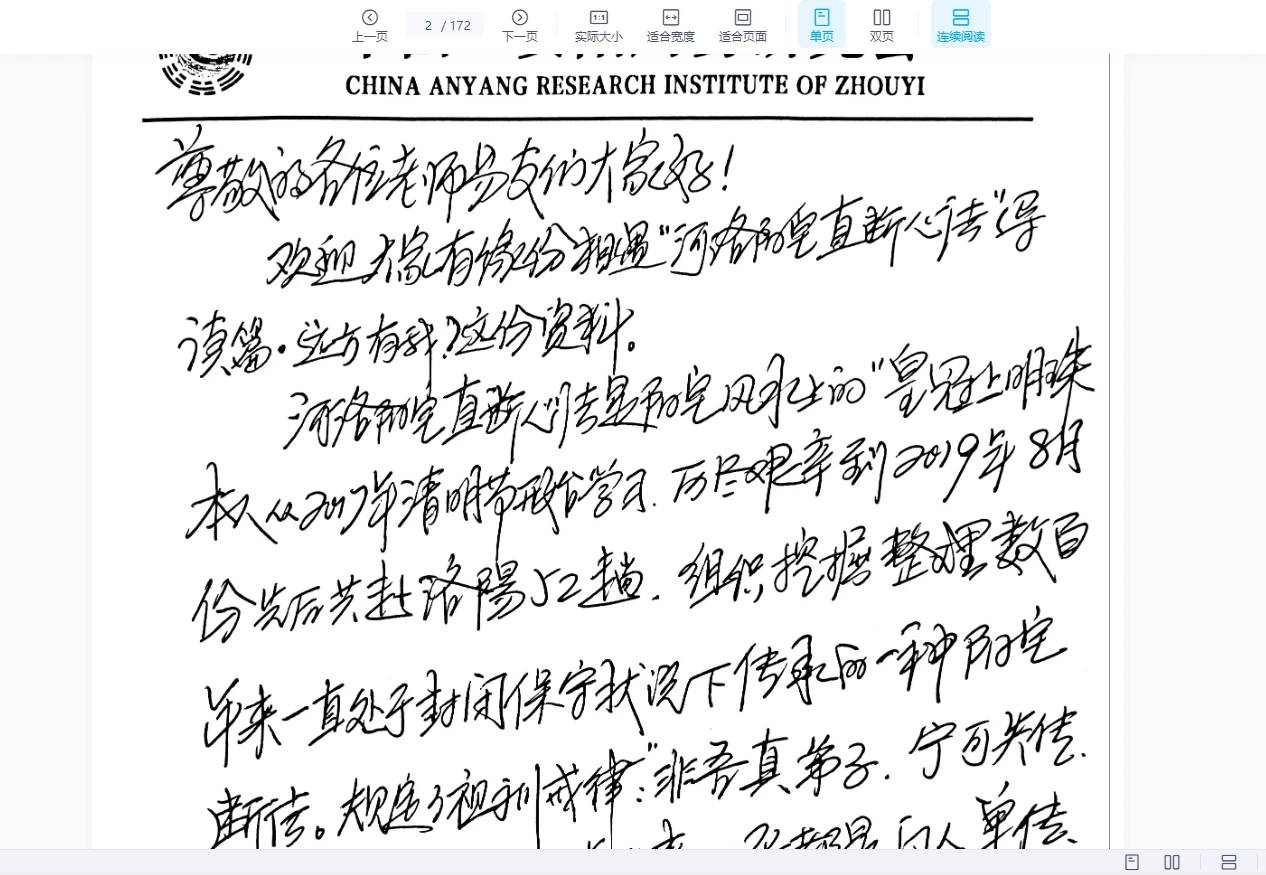 上一页
2 / 172
下一页
1:1
实际大小
适合宽度
适合页面
单页
双页
连续阅读
CHINA ANYANG RESEARCH INSTITUTE OF ZHOUYI
尊敬的各位老师易友们大家好！
欢迎大家有缘份相遇“河洛阴宅直断心法”导
读篇。这份资料。
河洛阴宅直断心法是阴宅风水上的“皇冠上明珠
本人从2017年清明节开始学习.历尽艰辛到2019年8月
份先后共赴洛陽52趟.组织挖掘整理数百
年来一直处于封闭保守状况下传承的一种阴宅
断法。规定了祖训戒律：“非吾真弟子.宁可失传.
单传